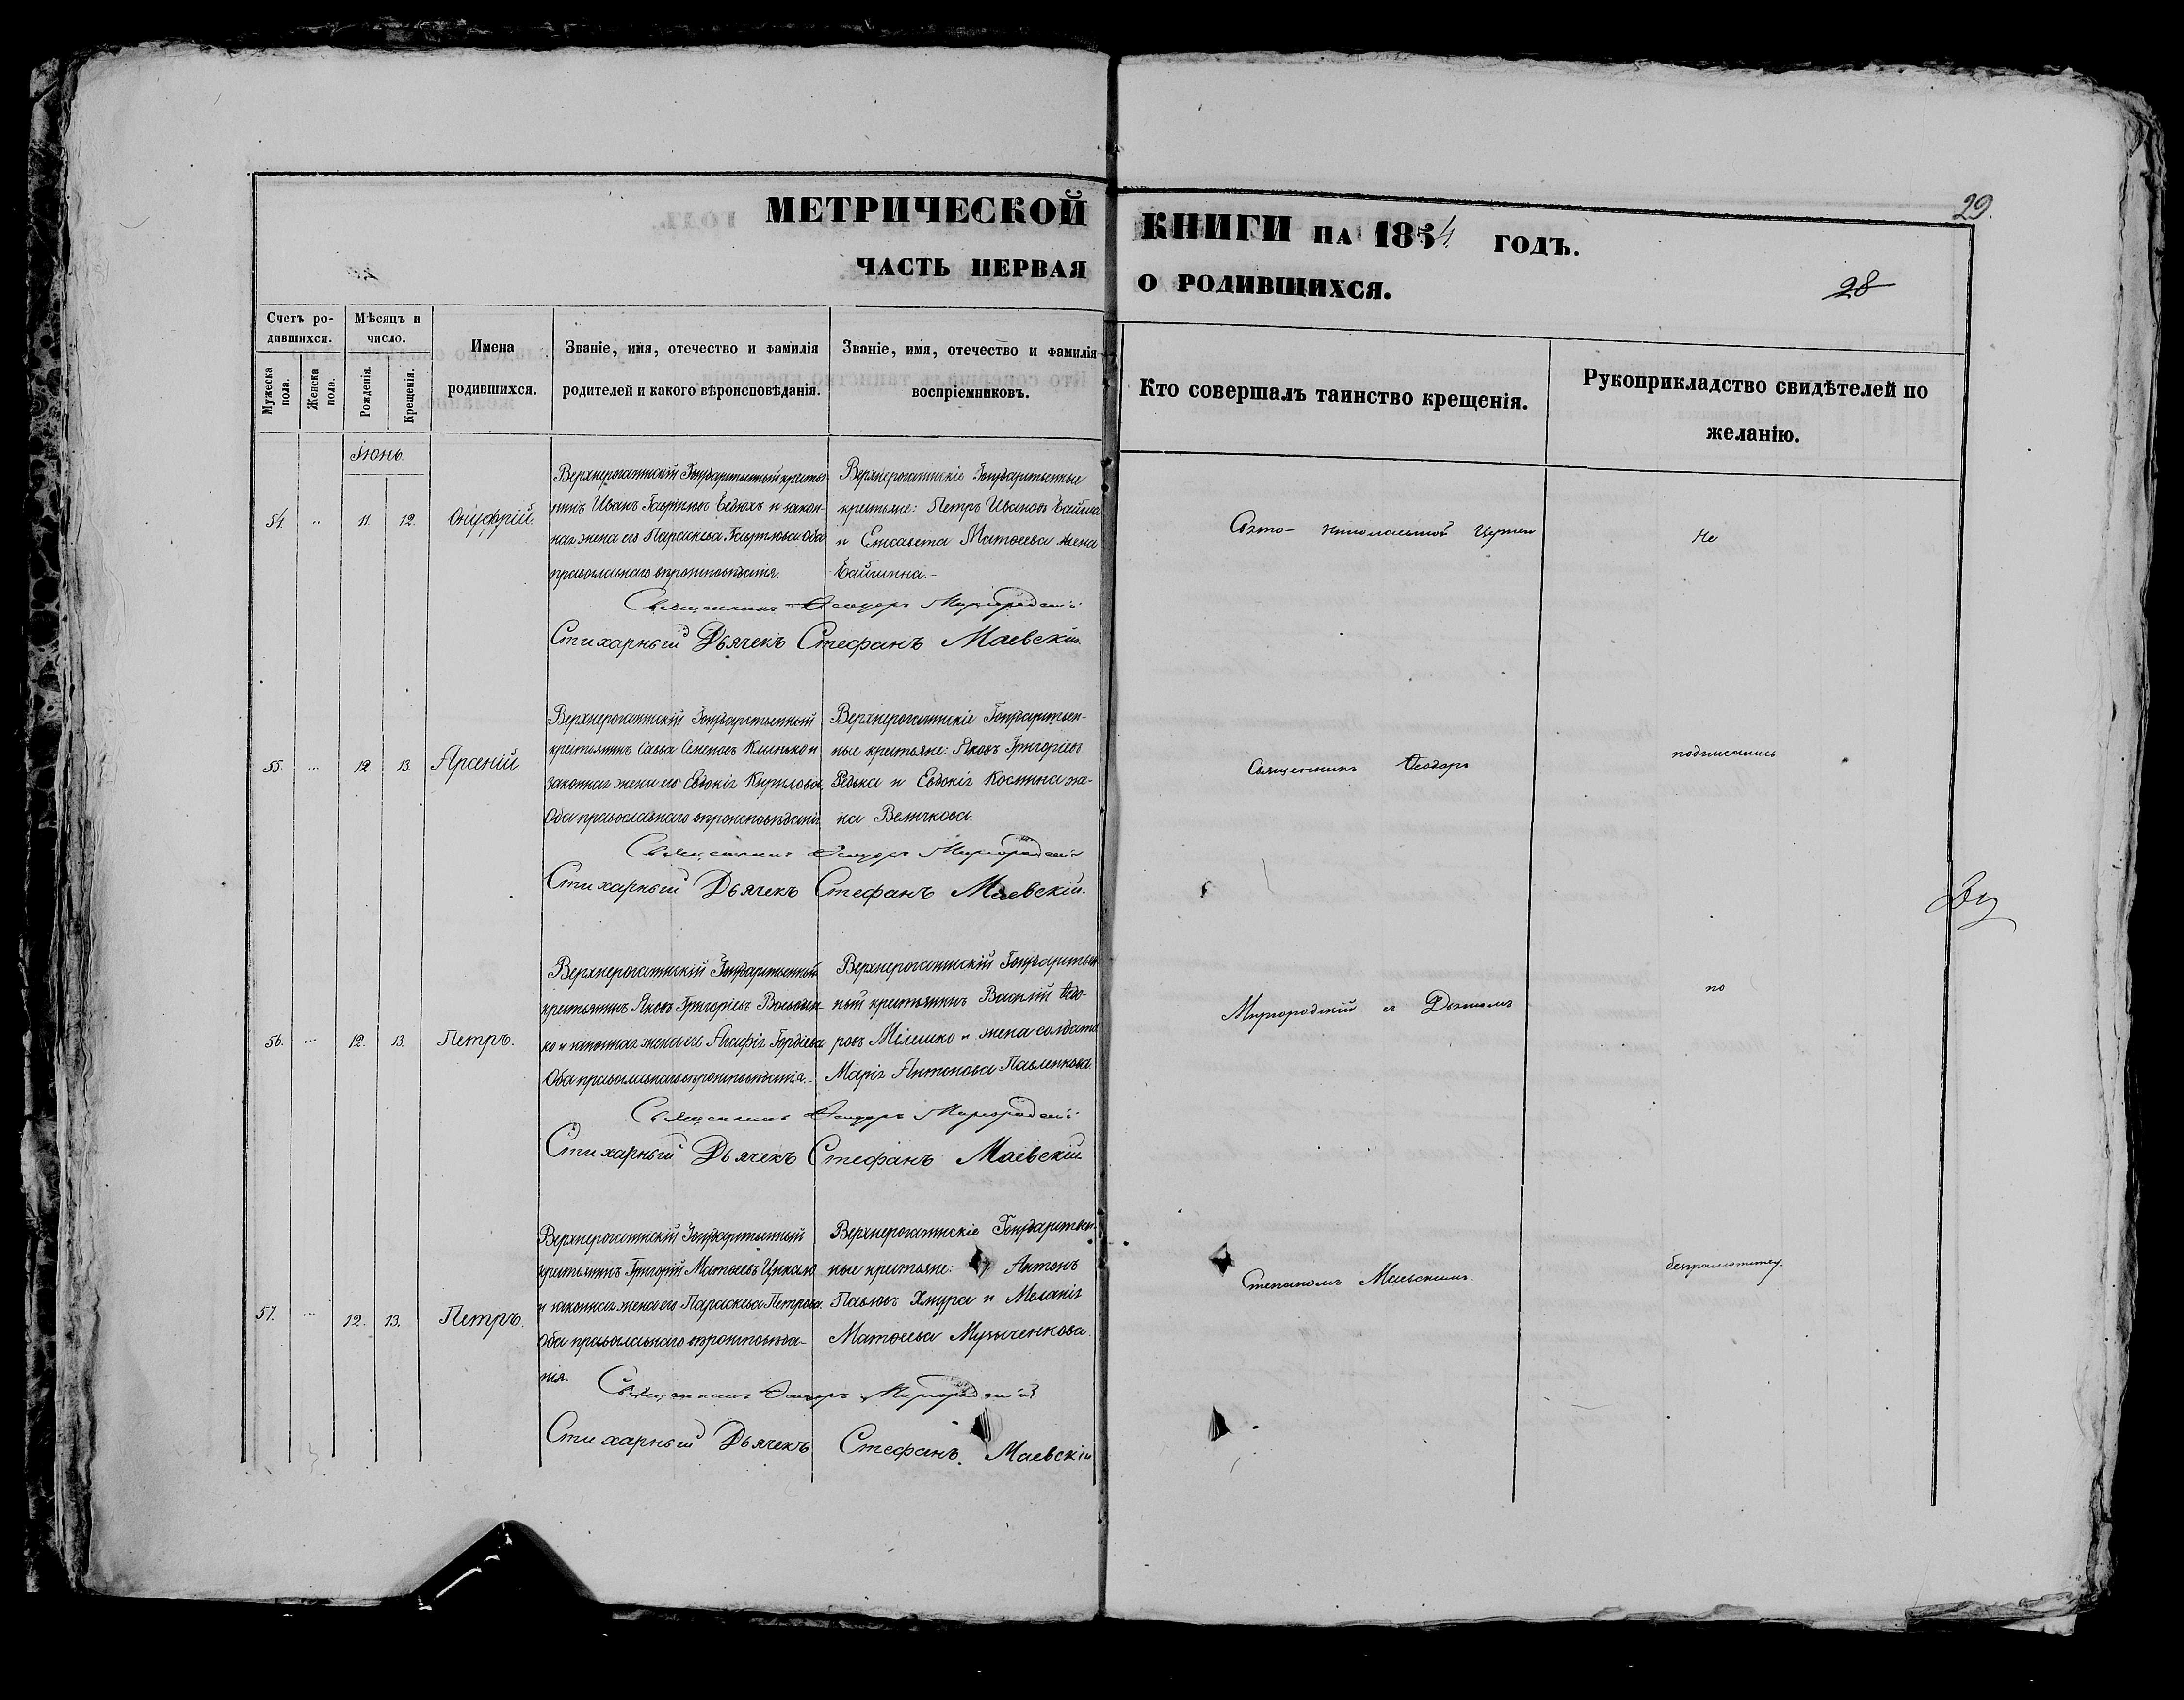 МЕТРИЧЕСКОЙ КНИГИ НА 1854 ГОДЪ.
29.
ЧАСТЬ ПЕРВАЯ О РОДИВШИХСЯ.
28
Счетъ родившихся.
Мужеска пола.
Женска пола.
Мѣсяцъ и число.
Рожденія.
Крещенія.
Имена родившихся.
Званіе, имя, отечество и фамилія
родителей и какого вѣроисповѣданія.
Званіе, имя, отечество и фамилія
воспріемниковъ.
Кто совершалъ таинство крещенія.
Рукоприкладство свидѣтелей по
желанію.
Іюнь.
54. .. 11. 12. Онуфрій.
Верхнерогачикскій Государственный крестья-
нинъ Иванъ Гавріиловъ и закон-
ная жена его Параскева Гавріилова оба
православнаго вѣроисповѣданія.
Верхнерогачикскіе Государственные
крестьяне: Петръ Ивановъ
и Елисавета Матѳеева жена
Свято- Николаевской Церкви
Не
Священникъ Ѳеодоръ Миргородскій
Стихарный Дьячекъ Стефанъ Маевскій.
55. ... 12. 13. Арсеній.
Верхнерогачикскій Государственный
крестьянинъ Савва Семеновъ Клинько и
законная жена его Евдокія Кирилова
Оба православнаго вѣроисповѣданія
Верхнерогачикскіе Государствен-
ные крестьяне: Яковъ Григоріевъ
Рѣдька и Евдокія Космина же-
на Величкова.
Священникъ Ѳеодоръ
подписались
Священникъ Ѳеодоръ Миргородскій
Стихарный Дьячекъ Стефанъ Маевскій.
56. ... 12. 13. Петръ.
Верхнерогачикскій Государственный
крестьянинъ Яковъ Григоріевъ
ко и законная жена его Агафія Гордіева
Оба православнаго вѣроисповѣданія.
Верхнерогачикскій Государствен
ный крестьянинъ Василій Ѳедо-
ровъ Мілешко и жена солдата
Марія Антонова Павленкова.
Миргородскій съ Дьячкомъ
по
Священникъ Ѳеодоръ Миргородскій
Стихарный Дьячекъ Стефанъ Маевскій
57. ... 12. 13. Петръ.
Верхнерогачикскій Государственный
крестьянинъ Григорій Матѳеевъ Цикало
и законная жена его Параскева Петрова.
Оба православнаго вѣроисповѣда-
нія.
Верхнерогачикскіе Государствен-
ные крестьяне: Антонъ
Павловъ Хмура и Меланія
Матѳеева Музыченкова.
Степаномъ Маевскимъ.
безграмотству.
Священникъ Ѳеодоръ Миргородскій
Стихарный Дьячекъ Стефанъ Маевскій